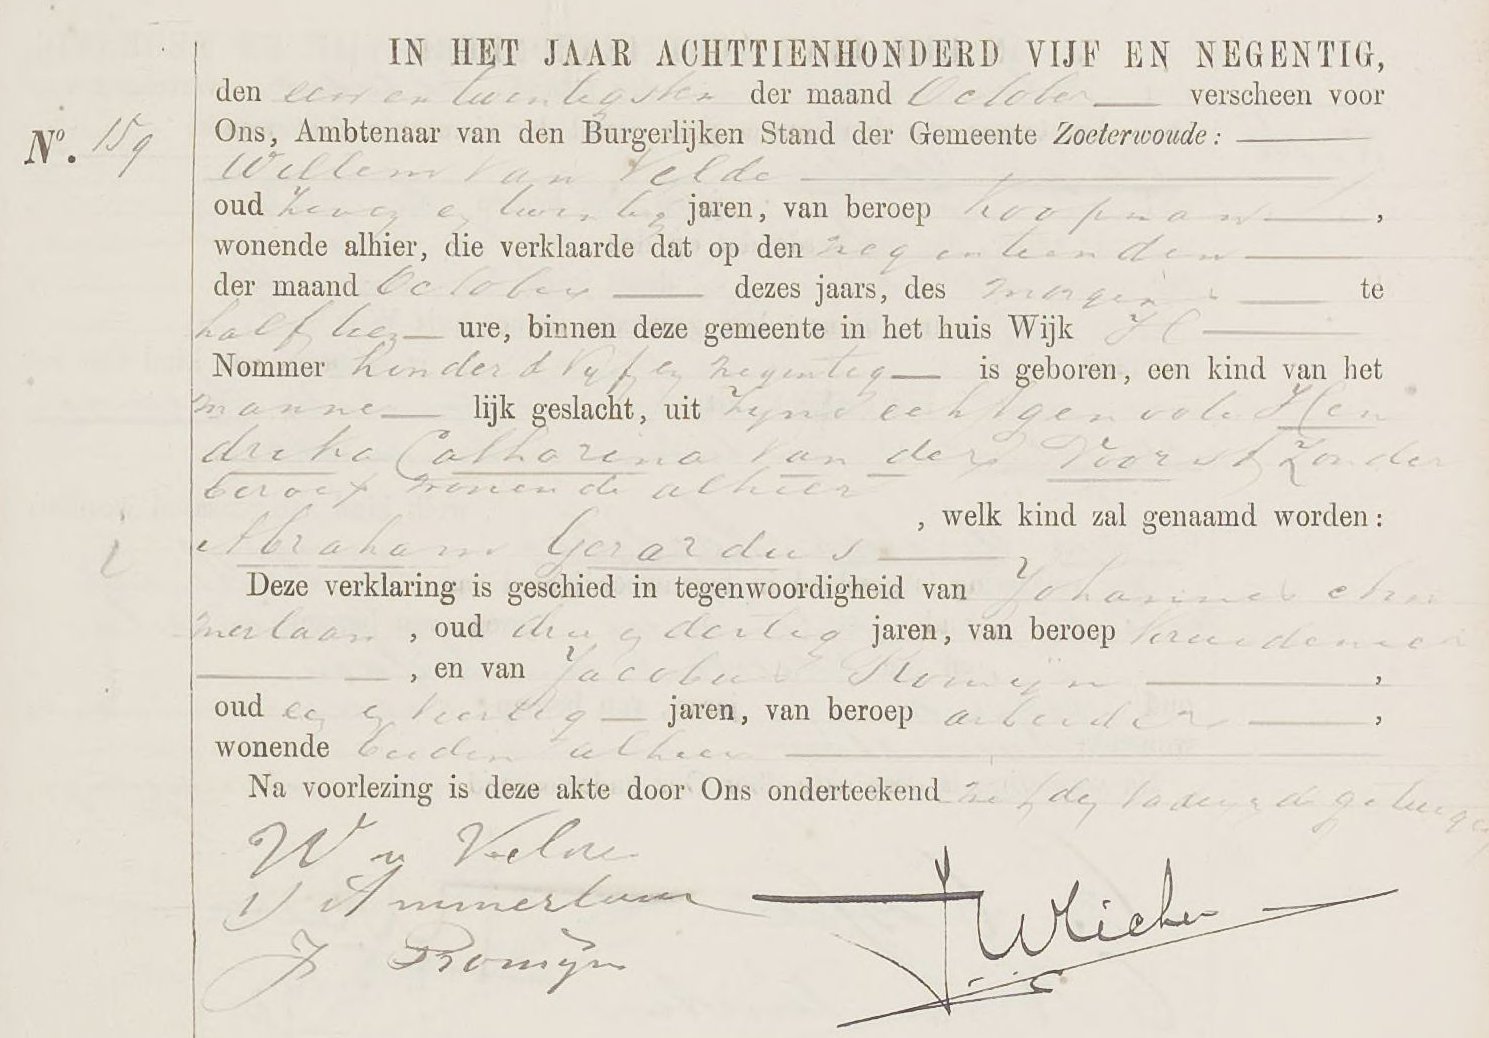 IN HET JAAR ACHTTIENHONDERD VIJF EN NEGENTIG,
den een en twintigsten der maand October verscheen voor
No. 159 Ons, Ambtenaar van den Burgerlijken Stand der Gemeente Zoeterwoude:
Willem van Velde
oud zeven en twintig jaren, van beroep koopman,
wonende alhier, die verklaarde dat op den negentienden
der maand October dezes jaars, des morgens te
half tien ure, binnen deze gemeente in het huis Wijk H
Nommer honderd vyf en negentig is geboren, een kind van het
manne lijk geslacht, uit zyne echtgenoote Hen
drika Catharina van der Voorst zonder
beroep wonende alhier
, welk kind zal genaamd worden:
Abraham Gerardus
Deze verklaring is geschied in tegenwoordigheid van Johannes Am
merlaan, oud drie en dertig jaren, van beroep kruidenier
, en van Jacobus Romijn,
oud en veertig jaren, van beroep arbeider,
wonende beiden alhier
Na voorlezing is deze akte door Ons onderteekend met den vader en de getuigen
W v Velde
J Ammerlaan
J Romijn